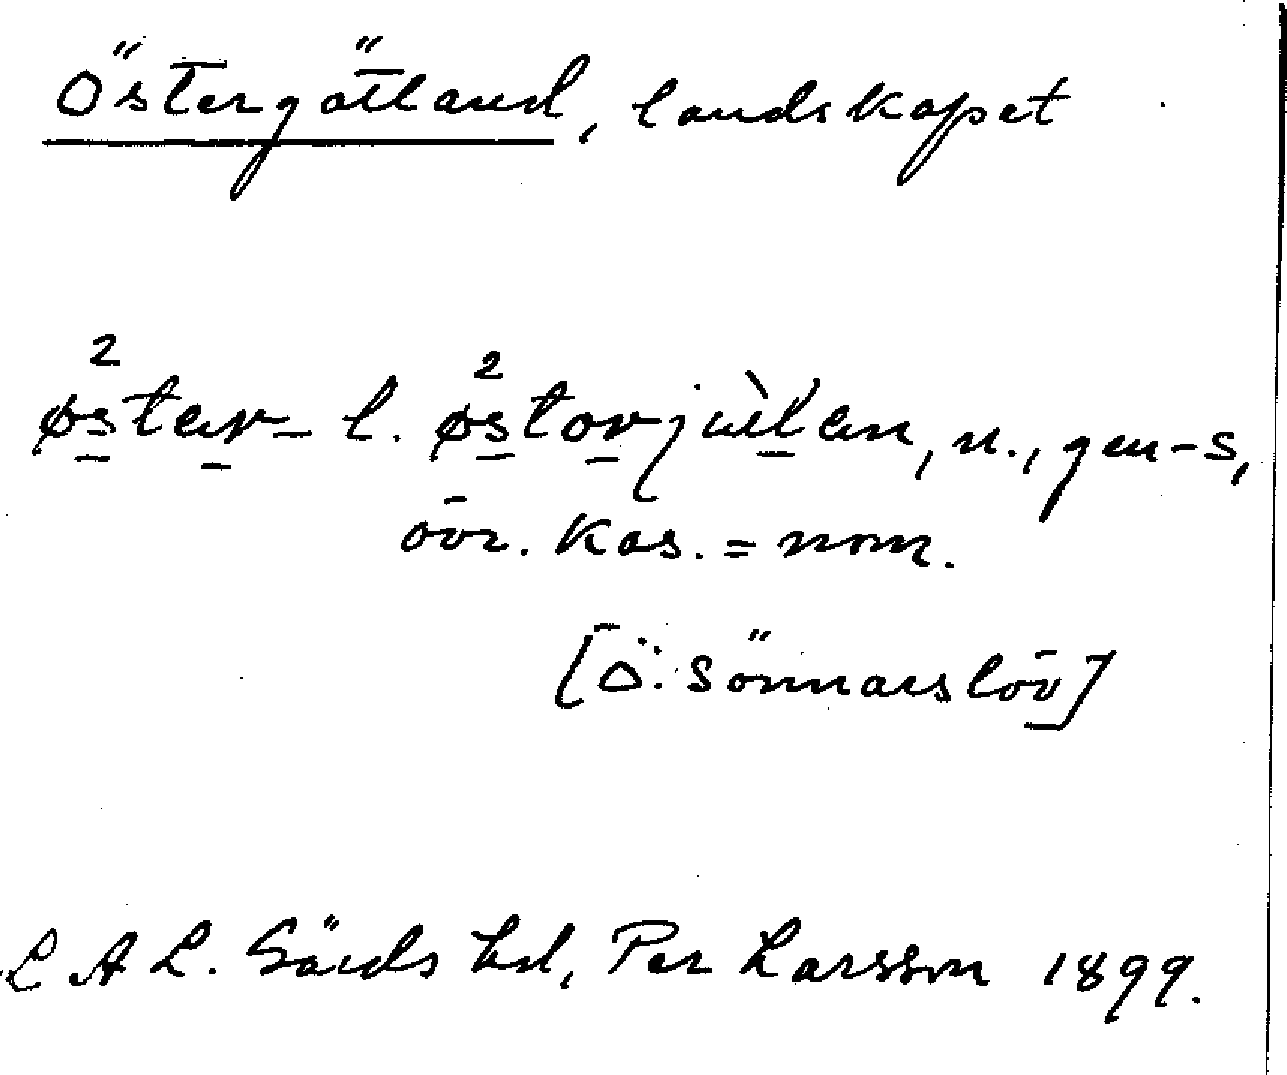 Östergötland, landskapet
østar- l. østorjùtlan, n., gen -s,
övr. kas. = nom.
[Ö. Sönnarslöv]
LAL. Gärds hd, Per Larsson 1899.